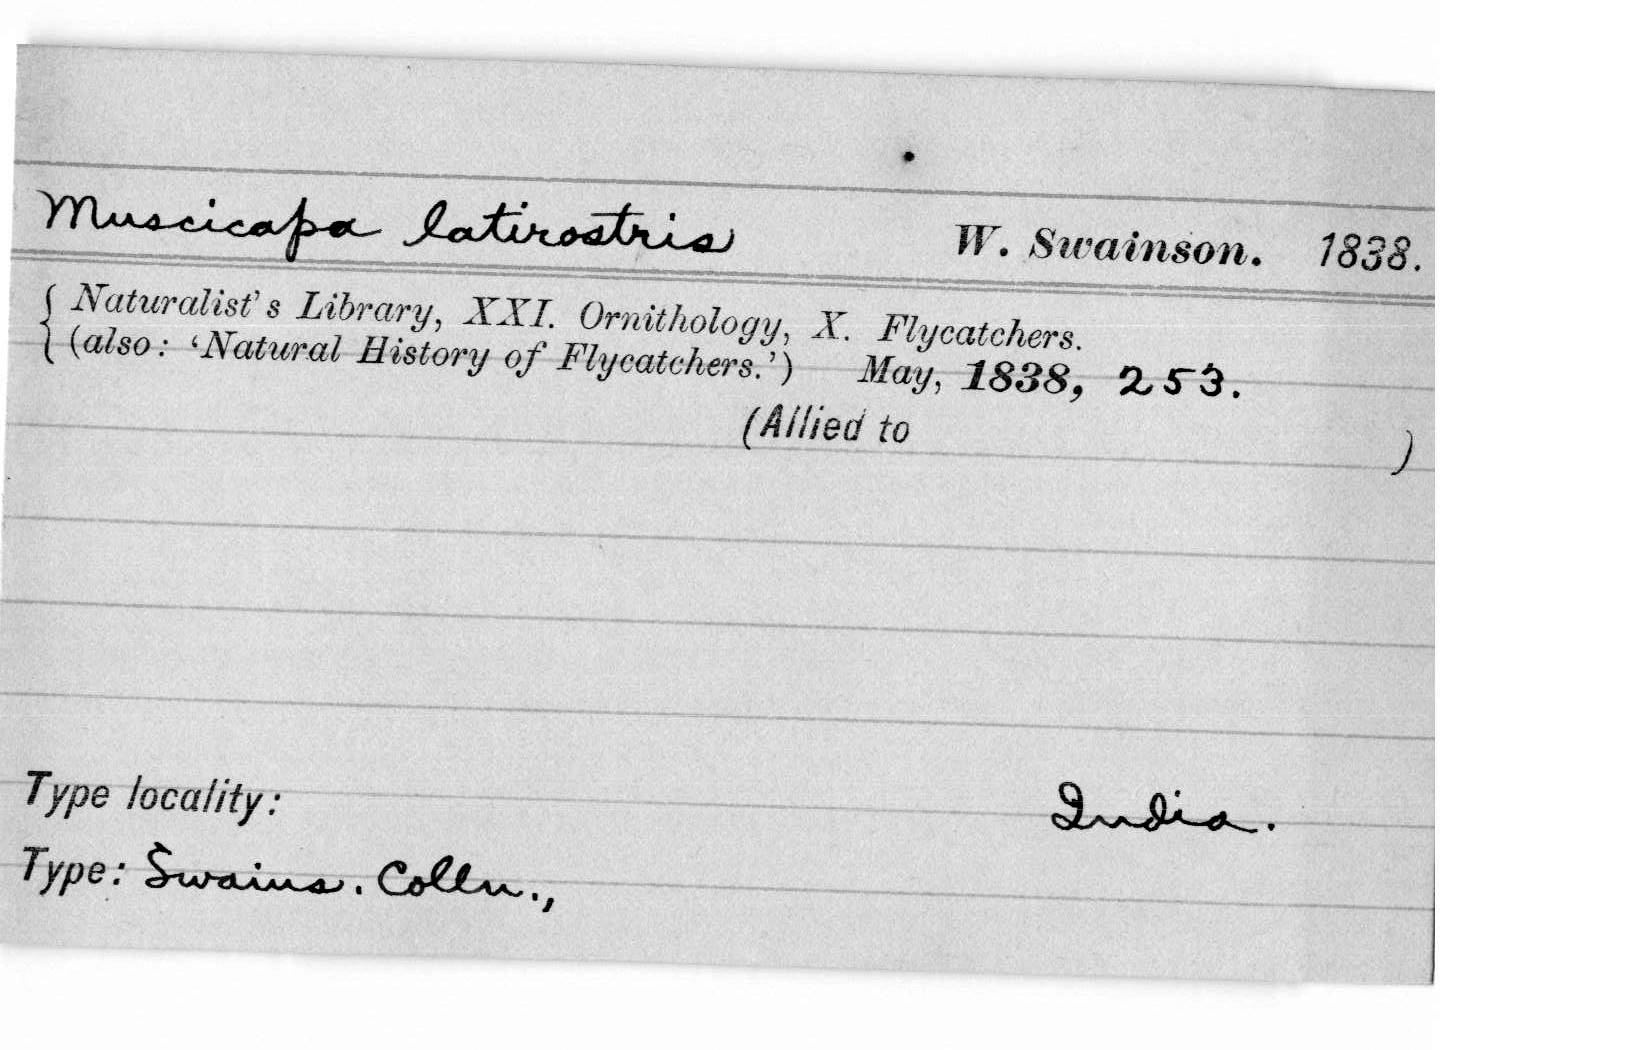 Muscicapa latirostris W. Swainson. 1838.
Naturalist's Library, XXI. Ornithology, X. Flycatchers.
(also: 'Natural History of Flycatchers.') May, 1838, 253.
(Allied to )
Type locality: India.
Type: Swains. Colln.,